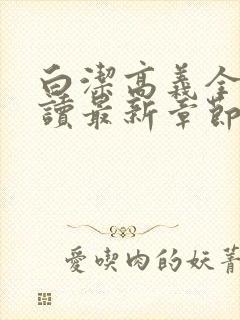 白潔高義全
讀最新章節
愛喫肉的妖菁